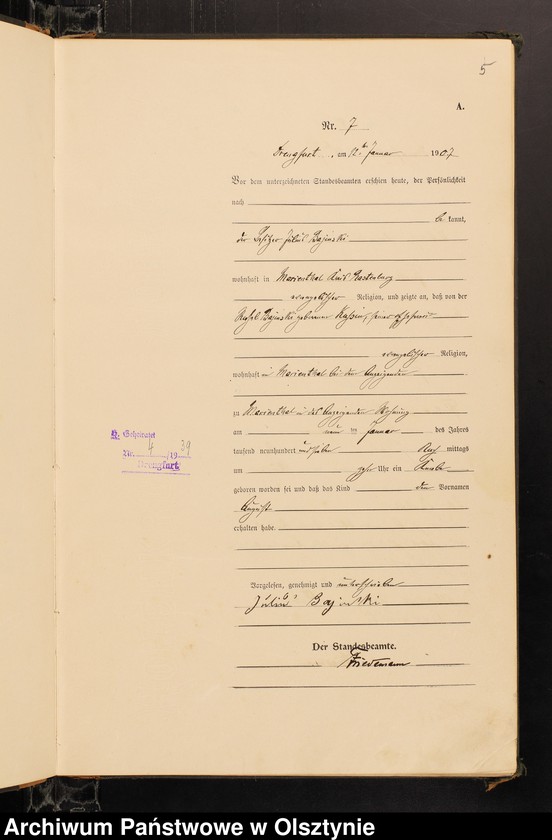 5
A.
Nr. 7
Drengfurt, am 12ten Januar 1907
Vor dem unterzeichneten Standesbeamten erschien heute, der Persönlichkeit
nach
be kannt,
der Besitzer Julius Bajinski
wohnhaft in Marienthal Kreis Rastenburg
evangelischer Religion, und zeigte an, daß von der
Bajinski geborene seiner Ehefrau
evangelischer Religion,
wohnhaft in Marienthal bei dem Anzeigenden
zu Marienthal in des Anzeigenden Wohnung
am neun ten Januar des Jahres
tausend neunhundert und sieben Nach mittags
um Uhr ein Knabe
geboren worden sei und daß das Kind den Vornamen
August
erhalten habe.
Vorgelesen, genehmigt und unterschrieben
Julius Bajinski
Der Standesbeamte.
Friedemann
Nr. 4 /19 39
Drengfurt
Archiwum Państwowe w Olsztynie